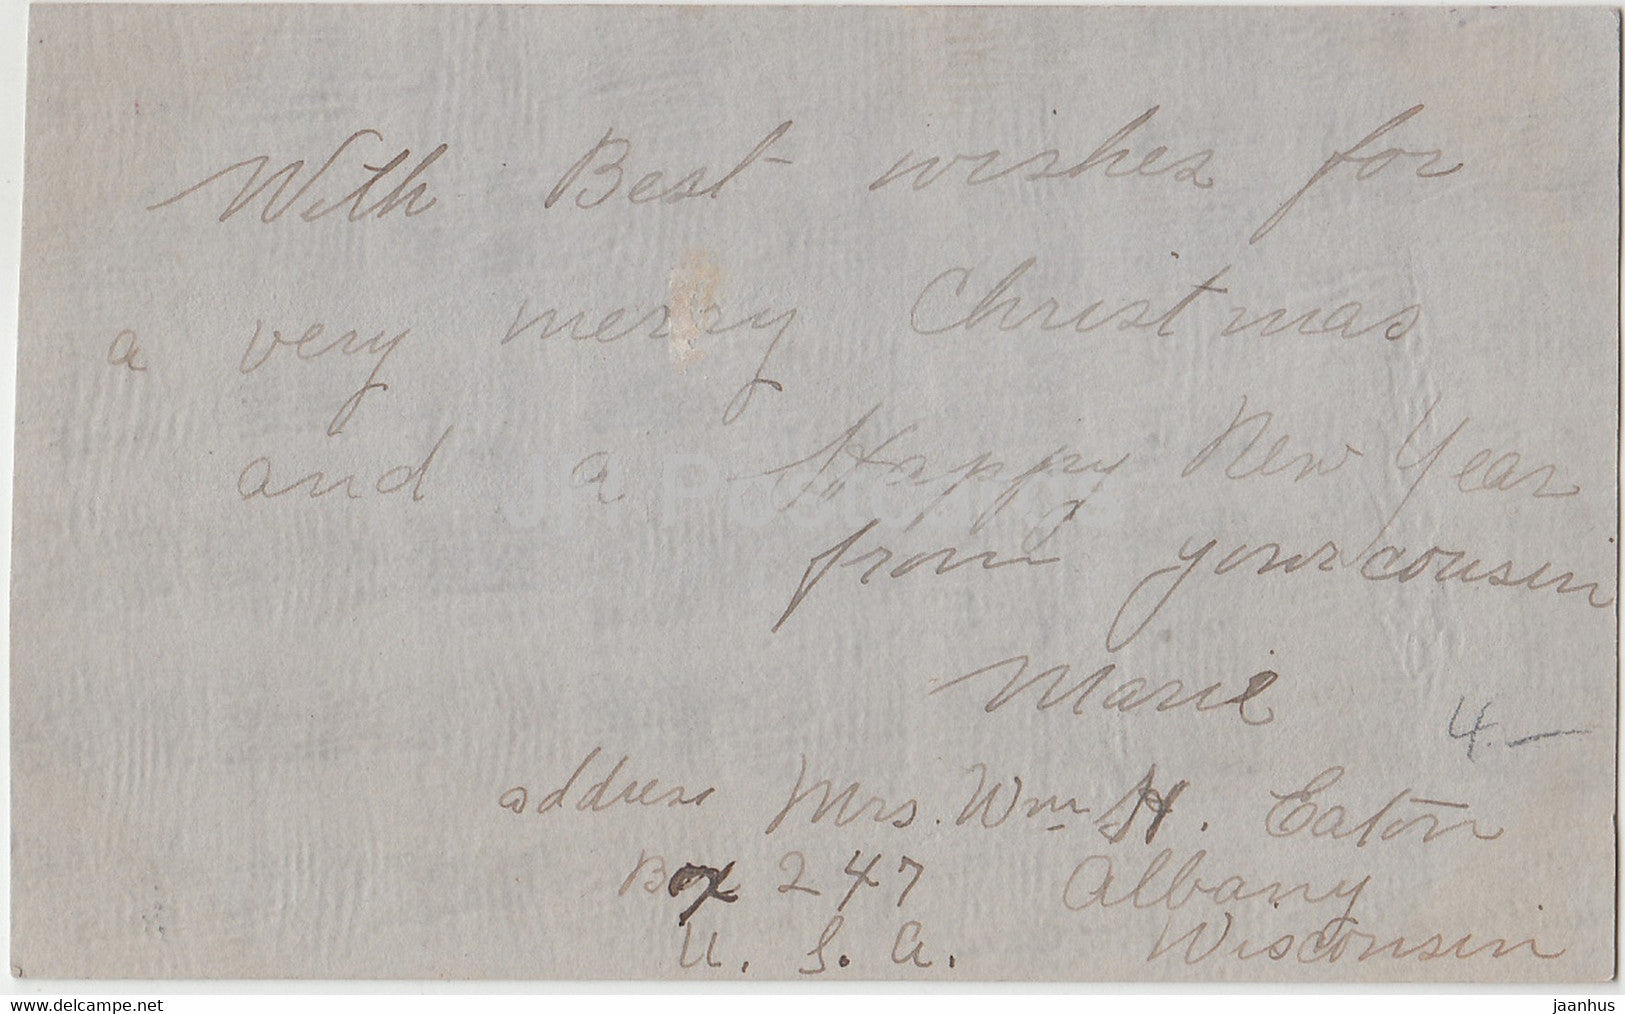 With Best wishes for
a very merry Christmas
and a Happy New Year
from your cousin
Marie
4.—
address Mrs. Wm H. Eaton
Box 247 Albany
U. S. A. Wisconsin
JH Postcards
www.delcampe.net
jaanhus